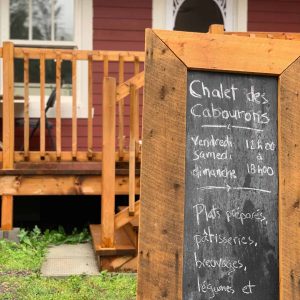 Chalet des
Cabourons
Vendredi 12h00
Samedi à
dimanche 18h00
Plats préparés,
pâtisseries,
breuvages,
légumes et